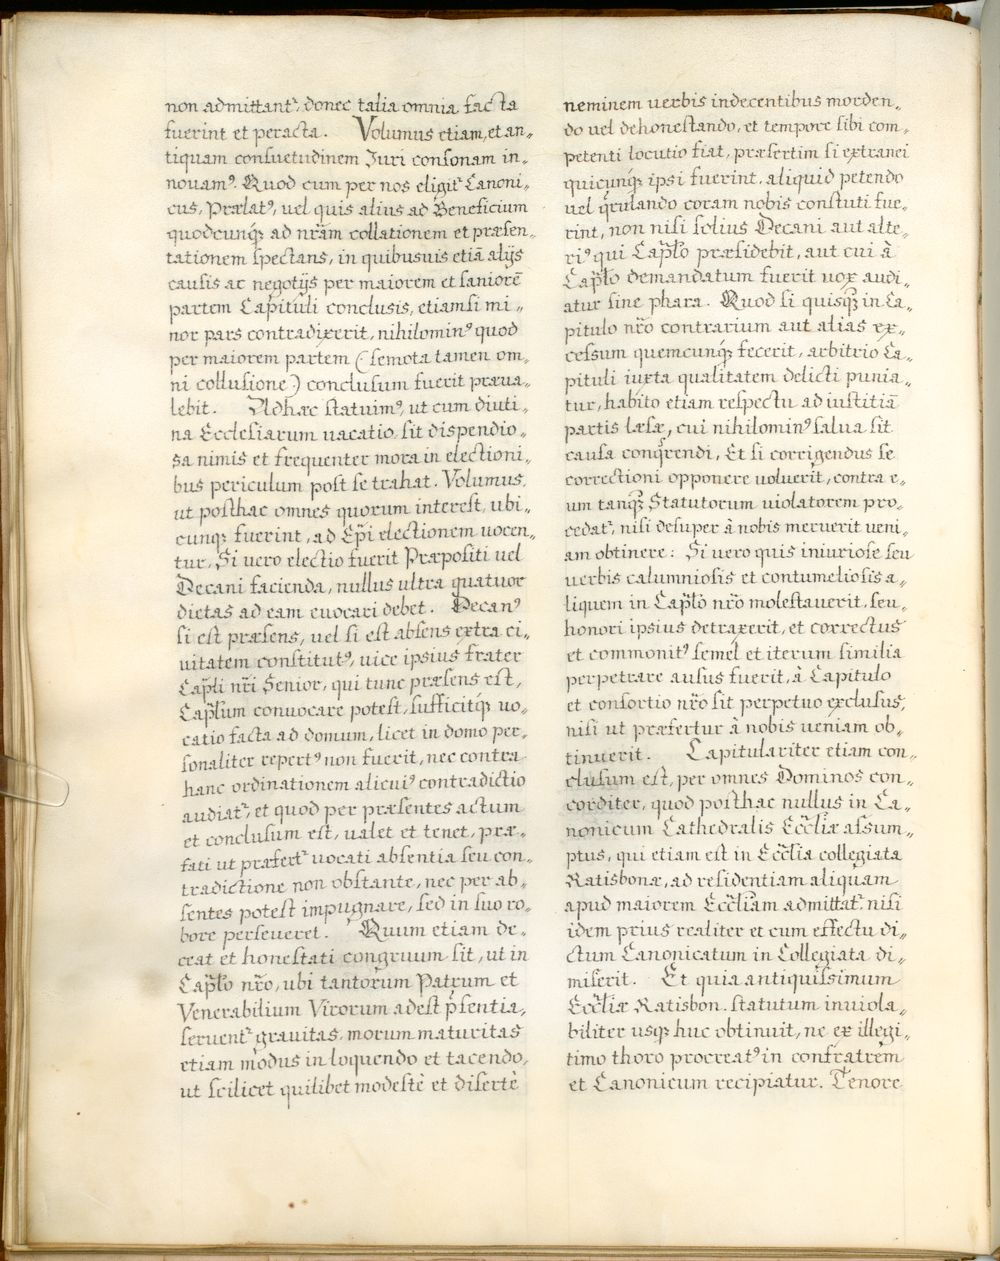 non admittantᷣ, donec talia omnia facta
fuerint et peracta. Volumus etiam, et an„
tiquam consuetudinem Juri consonam in„
novamꝰ. Quod cum per nos eligitᷣ Canoni„
cus, Prælatꝰ, vel quis alius ad Beneficium
quodcunqꝫ ad nr̃am collationem et præsen„
tationem spectans, in quibusuis etiã alijs
causis ac negotijs per maiorem et saniorẽ
partem Capituli conclusis, etiamsi mi„
nor pars contradixerit, nihilominꝰ quod
per maiorem partem (semota tamen om„
ni collusione) conclusum fuerit præua„
lebit. Adhæc statuimꝰ, ut cum diuti„
na Ecclesiarum uacatio sit dispendio„
sa nimis et frequenter mora in electioni„
bus periculum post se trahat. Volumus,
ut posthac omnes quorum interest, ubi„
cunqꝫ fuerint, ad Ep̃i electionem uocen„
tur, Si uero electio fuerit Præpositi uel
Decani facienda, nullus ultra quatuor
dietas ad eam euocari debet. Decanꝰ
si est præsens, uel si est absens extra ci„
uitatem constitutꝰ, uice ipsius frater
Cap̃li nr̃i Senior, qui tunc præsens est,
Cap̃lum conuocare potest, sufficitqꝫ uo„
catio facta ad domum, licet in domo per„
sonaliter repertꝰ non fuerit, nec contra
hanc ordinationem alicuiꝰ contradictio
audiatᷣ, et quod per præsentes actum
et conclusum est, ualet et tenet, præ„
fati ut præfertᷣ uocati absentia seu con„
tradictione non obstante, nec per ab„
sentes potest impugnare, sed in suo ro„
bore perseueret. Quum etiam de„
ceat et honestati congruum sit, ut in
Cap̃lo nr̃o, ubi tantorum Patrum et
Venerabilium Virorum adest p̃sentia,
seruentᷣ grauitas, morum maturitas
etiam modus in loquendo et tacendo,
ut scilicet quilibet modestè et disertè
neminem uerbis indecentibus morden„
do uel dehonestando, et tempore sibi com„
petenti locutio fiat, præsertim si extranei
quicunqꝫ ipsi fuerint, aliquid petendo
uel q̃rulando coram nobis constuti fue„
rint, non nisi solius Decani aut alte„
riꝰ qui Cap̃lo præsidebit, aut cui à
Cap̃lo demandatum fuerit uox audi„
atur sine phara. Quod si quisqꝫ in Ca„
pitulo nr̃o contrarium aut alias ex„
cessum quemcunqꝫ fecerit, arbitrio Ca„
pituli iuxta qualitatem delicti punia„
tur, habito etiam respectu ad iustitiã
partis læsæ, cui nihilominꝰ salua sit
causa conq̃rendi, Et si corrigendus se
correctioni opponere uoluerit, contra e„
um tanqꝫ Statutorum uiolatorem pro„
cedatᷣ, nisi desuper â nobis meruerit ueni„
am obtinere: Si uero quis iniuriose seu
uerbis calumniosis et contumeliosis a„
liquem in Cap̃lo nr̃o molestauerit, seu
honori ipsius detraxerit, et correctus
et commonitꝰ semel et iterum similia
perpetrare ausus fuerit, à Capitulo
et consortio nr̃o sit perpetuo exclusus,
nisi ut præfertur â nobis ueniam ob„
tinuerit. Capitulariter etiam con„
clusum est, per omnes Dominos con„
corditer, quod posthac nullus in Ca„
nonicum Cathedralis Ecc̃liæ assum„
ptus, qui etiam est in Ecc̃lia collegiata
Ratisbonæ, ad residentiam aliquam
apud maiorem Ecc̃liam admittatᷣ nisi
idem prius realiter et cum effectu di„
ctum Canonicatum in Collegiata di„
miserit. Et quia antiquissimum
Ecc̃liæ Ratisbon. statutum inuiola„
biliter usqꝫ huc obtinuit, ne ex illegi„
timo thoro procreatꝰ in confratrem
et Canonicum recipiatur. Tenore